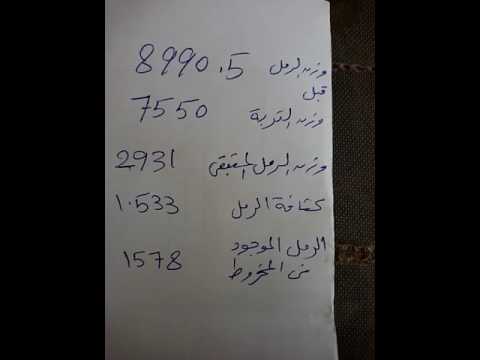 وزن الرمل 8990.5
قبل
وزن التربة 7550
وزن الرمل المتبقي 2931
كثافة الرمل 1.533
الرمل الموجود
في المخروط 1578